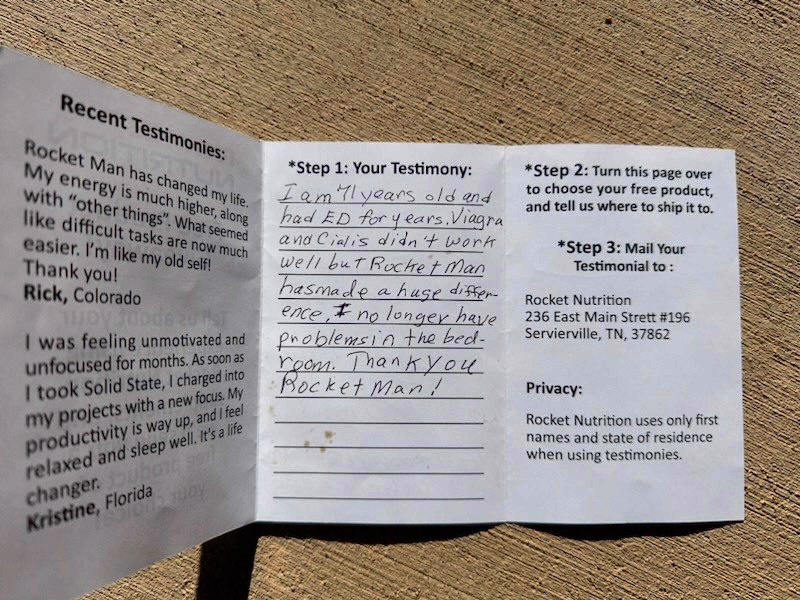 Recent Testimonies:
Rocket Man has changed my life.
My energy is much higher, along
with "other things". What seemed
like difficult tasks are now much
easier. I'm like my old self!
Thank you!
Rick, Colorado
I was feeling unmotivated and
unfocused for months. As soon as
I took Solid State, I charged into
my projects with a new focus. My
productivity is way up, and I feel
relaxed and sleep well. It's a life
changer.
Kristine, Florida
*Step 1: Your Testimony:
I am 71 years old and
had ED for years. Viagra
and Cialis didn't work
well but Rocket Man
has made a huge differ-
ence. I no longer have
problems in the bed-
room. Thank you
Rocket Man!
*Step 2: Turn this page over
to choose your free product,
and tell us where to ship it to.
*Step 3: Mail Your
Testimonial to :
Rocket Nutrition
236 East Main Strett #196
Servierville, TN, 37862
Privacy:
Rocket Nutrition uses only first
names and state of residence
when using testimonies.